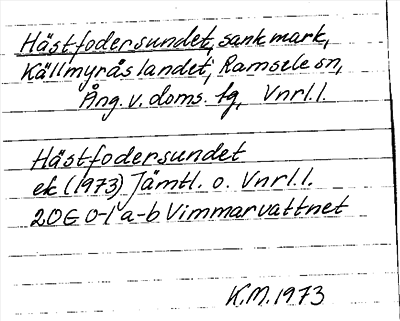 Hästfodersundet, sank mark,
Källmyråslandet, Ramsele sn,
Ång. v. doms. tg, Vnrl. l.
Hästfodersundet
ek (1973) Jämtl. o. Vnrl. l.
20G 0-1 a-b Vimmarvattnet
K.M. 1973